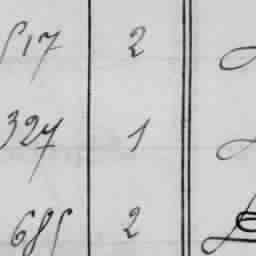 517 2
327 1
685 2